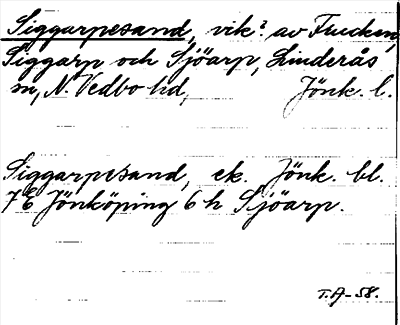 Siggarpesand, vik? av Frucken,
Siggarp och Sjöarp, Linderås
sn, N. Vedbo hd, Jönk. l.
Siggarpesand, ek. Jönk. bl.
7 E Jönköping 6 h Sjöarp.
T.A-58.